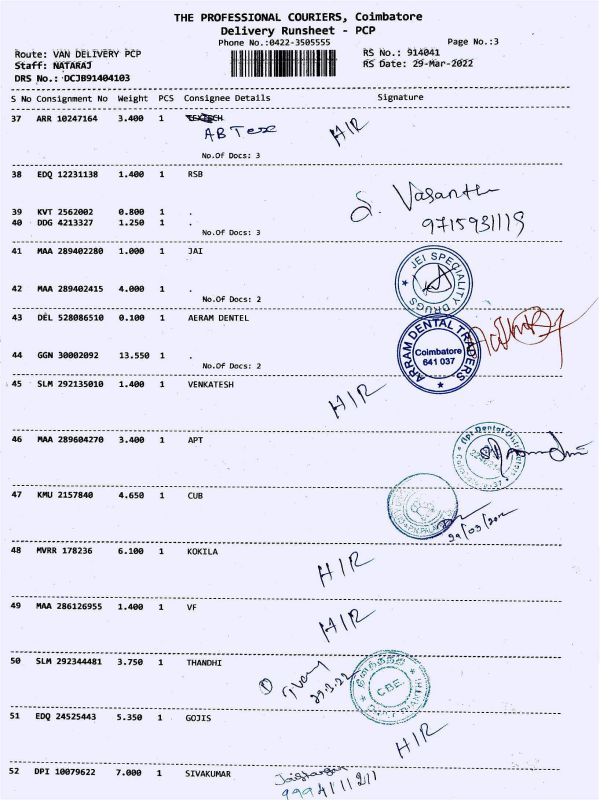 THE PROFESSIONAL COURIERS, Coimbatore
Delivery Runsheet - PCP
Phone No.:0422-3505555
Page No.:3
Route: VAN DELIVERY PCP
RS No.: 914041
Staff: NATARAJ
RS Date: 29-Mar-2022
DRS No.: DCJB91404103
S No Consignment No Weight PCS Consignee Details Signature
37 ARR 10247164 3.400 1
AB Tex
HIR
No.Of Docs: 3
38 EDQ 12231138 1.400 1 RSB
S. Vasanth
39 KVT 2562002 0.800 1 .
40 DDG 4213327 1.250 1 .
9715931119
No.Of Docs: 3
41 MAA 289402280 1.000 1 JAI
JEI SPECIALITY DRUGS
42 MAA 289402415 4.000 1 .
No.Of Docs: 2
43 DEL 528086510 0.100 1 AERAM DENTEL
ARRAM DENTAL TRADERS
Coimbatore
641 037
44 GGN 30002092 13.550 1 .
No.Of Docs: 2
45 SLM 292135010 1.400 1 VENKATESH
HIR
46 MAA 289604270 3.400 1 APT
Apt Dental
47 KMU 2157840 4.650 1 CUB
29/03/2022
48 MVRR 178236 6.100 1 KOKILA
HIR
49 MAA 286126955 1.400 1 VF
HIR
50 SLM 292344481 3.750 1 THANDHI
29.3.22
தினத்தந்தி
CBE.
DAILY THANTHI
51 EDQ 24525443 5.350 1 GOJIS
HIR
52 DPI 10079622 7.000 1 SIVAKUMAR